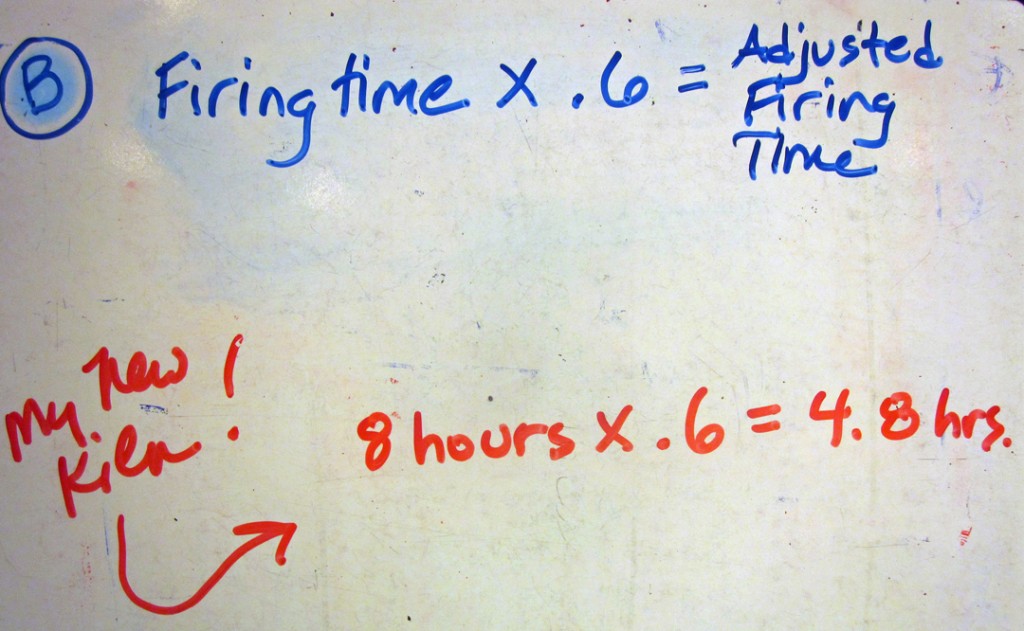 B Firing time X .6 = Adjusted
Firing
Time
my new !
Kiln
8 hours X .6 = 4.8 hrs.